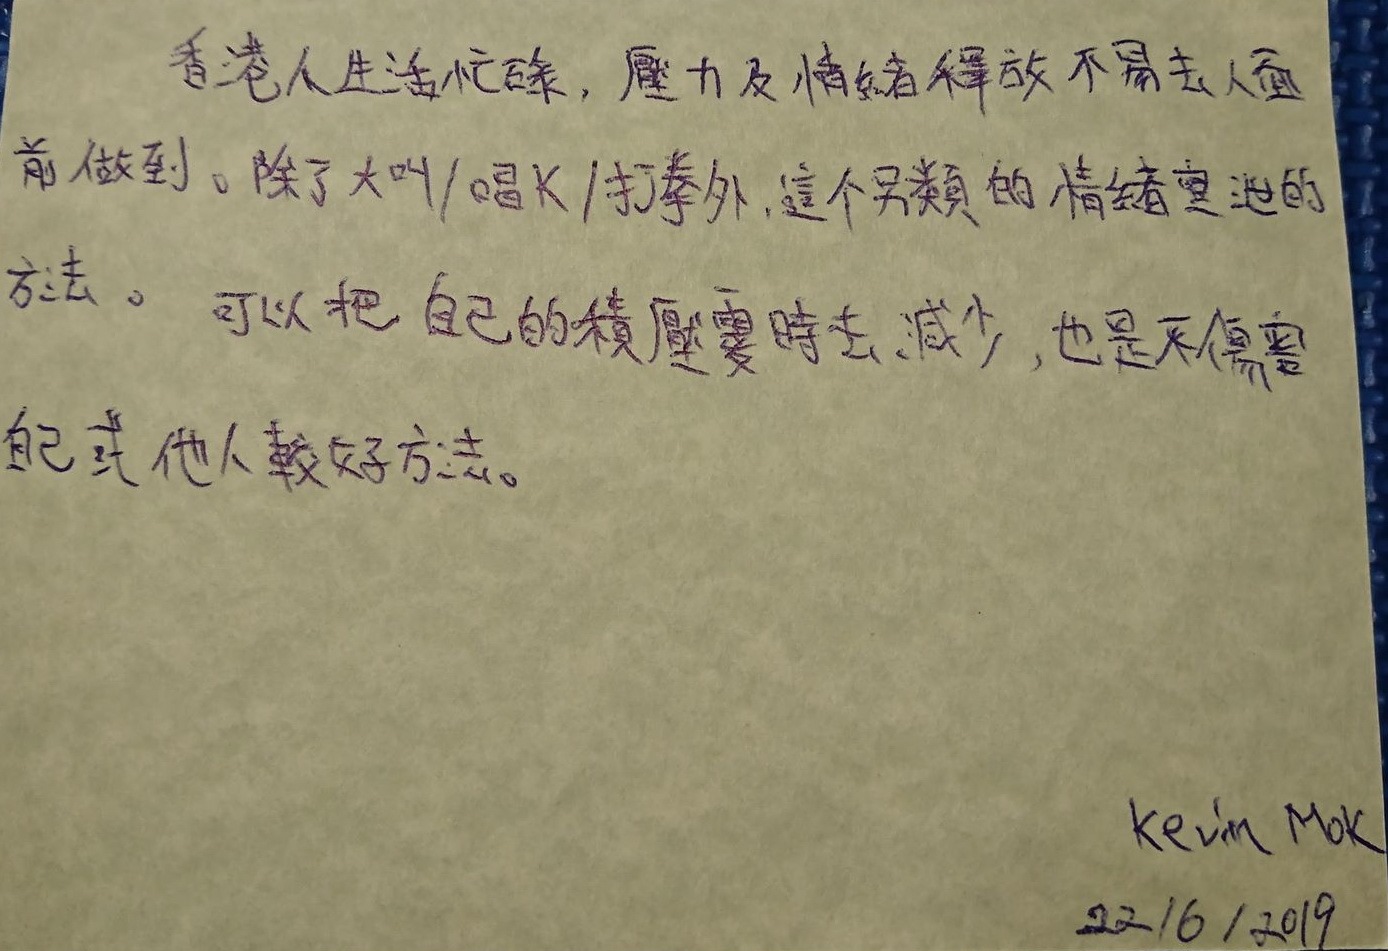 香港人生活忙碌，壓力及情緒釋放不易去人面
前做到。除了大叫/唱K/打拳外，這个另類的情緒宣泄的
方法。可以把自己的積壓霎時去減少，也是不傷害
自己或他人較好方法。
Kevin Mok
22/6/2019